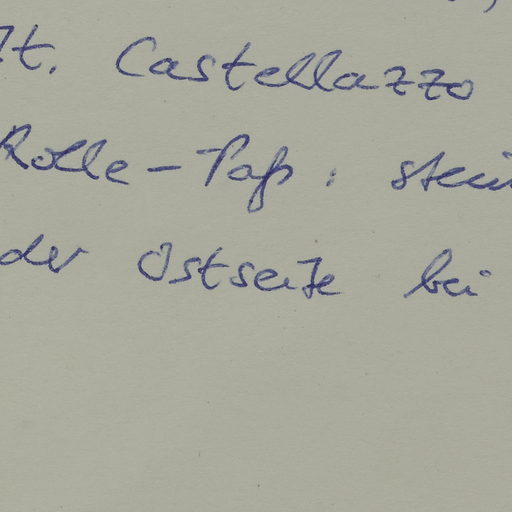 Mt. Castellazzo
Rolle-Paß: stein
der Ostseite bei